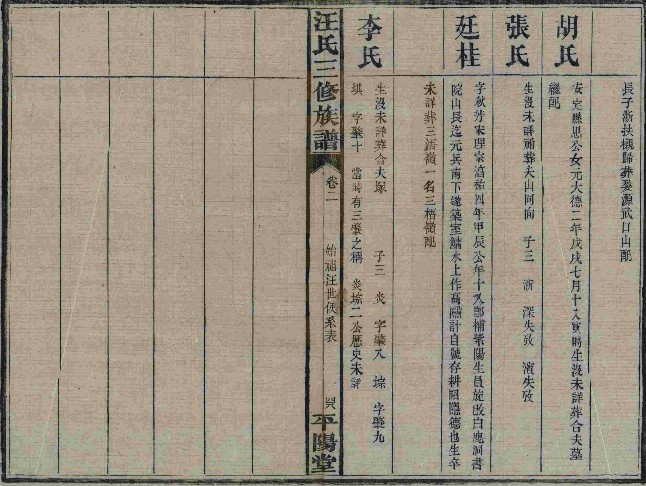 長子浙扶櫬歸葬婺源武口山配
胡氏
安定縣思公女元大德二年戊戌七月十八寅時生沒未詳葬合夫墓
繼配
張氏
生沒未詳祔葬夫山同向 子三 浙 深失攷 濱失攷
廷桂
字秋芳宋理宗淳祐四年甲辰公年十八郡補紫陽生員旋改白鹿洞書
院山長迄元兵南下遂築室鱅水上作高隱計自號存耕 隱德也生卒
未詳葬三浯嶺一名三梧嶺配
李氏
生沒未詳葬合夫塚 子三 炎 字肇八 琮 字肇九
祺 字肇十 當時有三肇之稱 炎琮二公歷史未詳
汪氏三修族譜
卷二
始祖汪世 系表
平陽堂